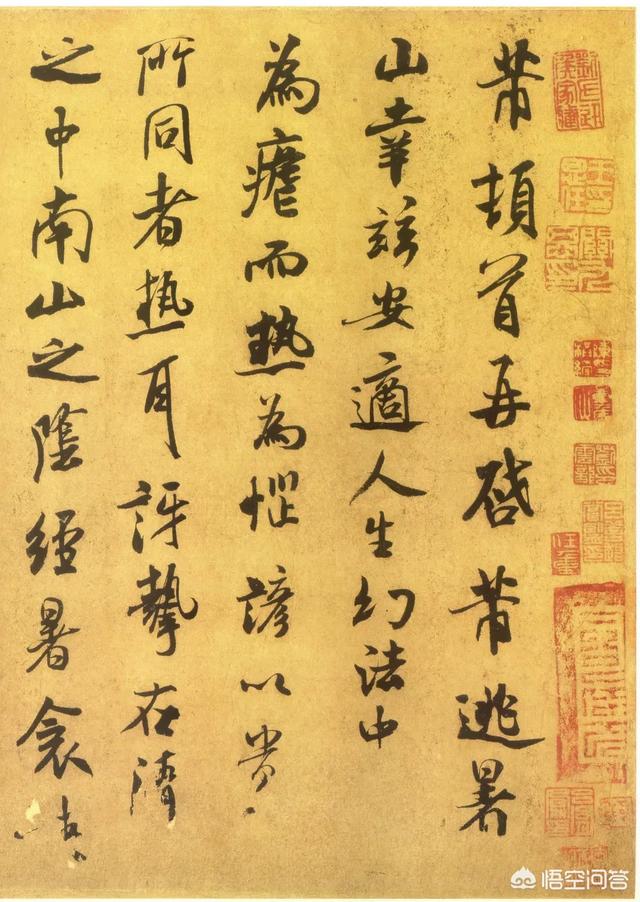 芾頓首再啓芾逃暑
山幸兹安適人生幻法中
為瘧而熱為惱諺以貴
所同者熱耳訝摯在清
之中南山之陰經暑衾
悟空问答